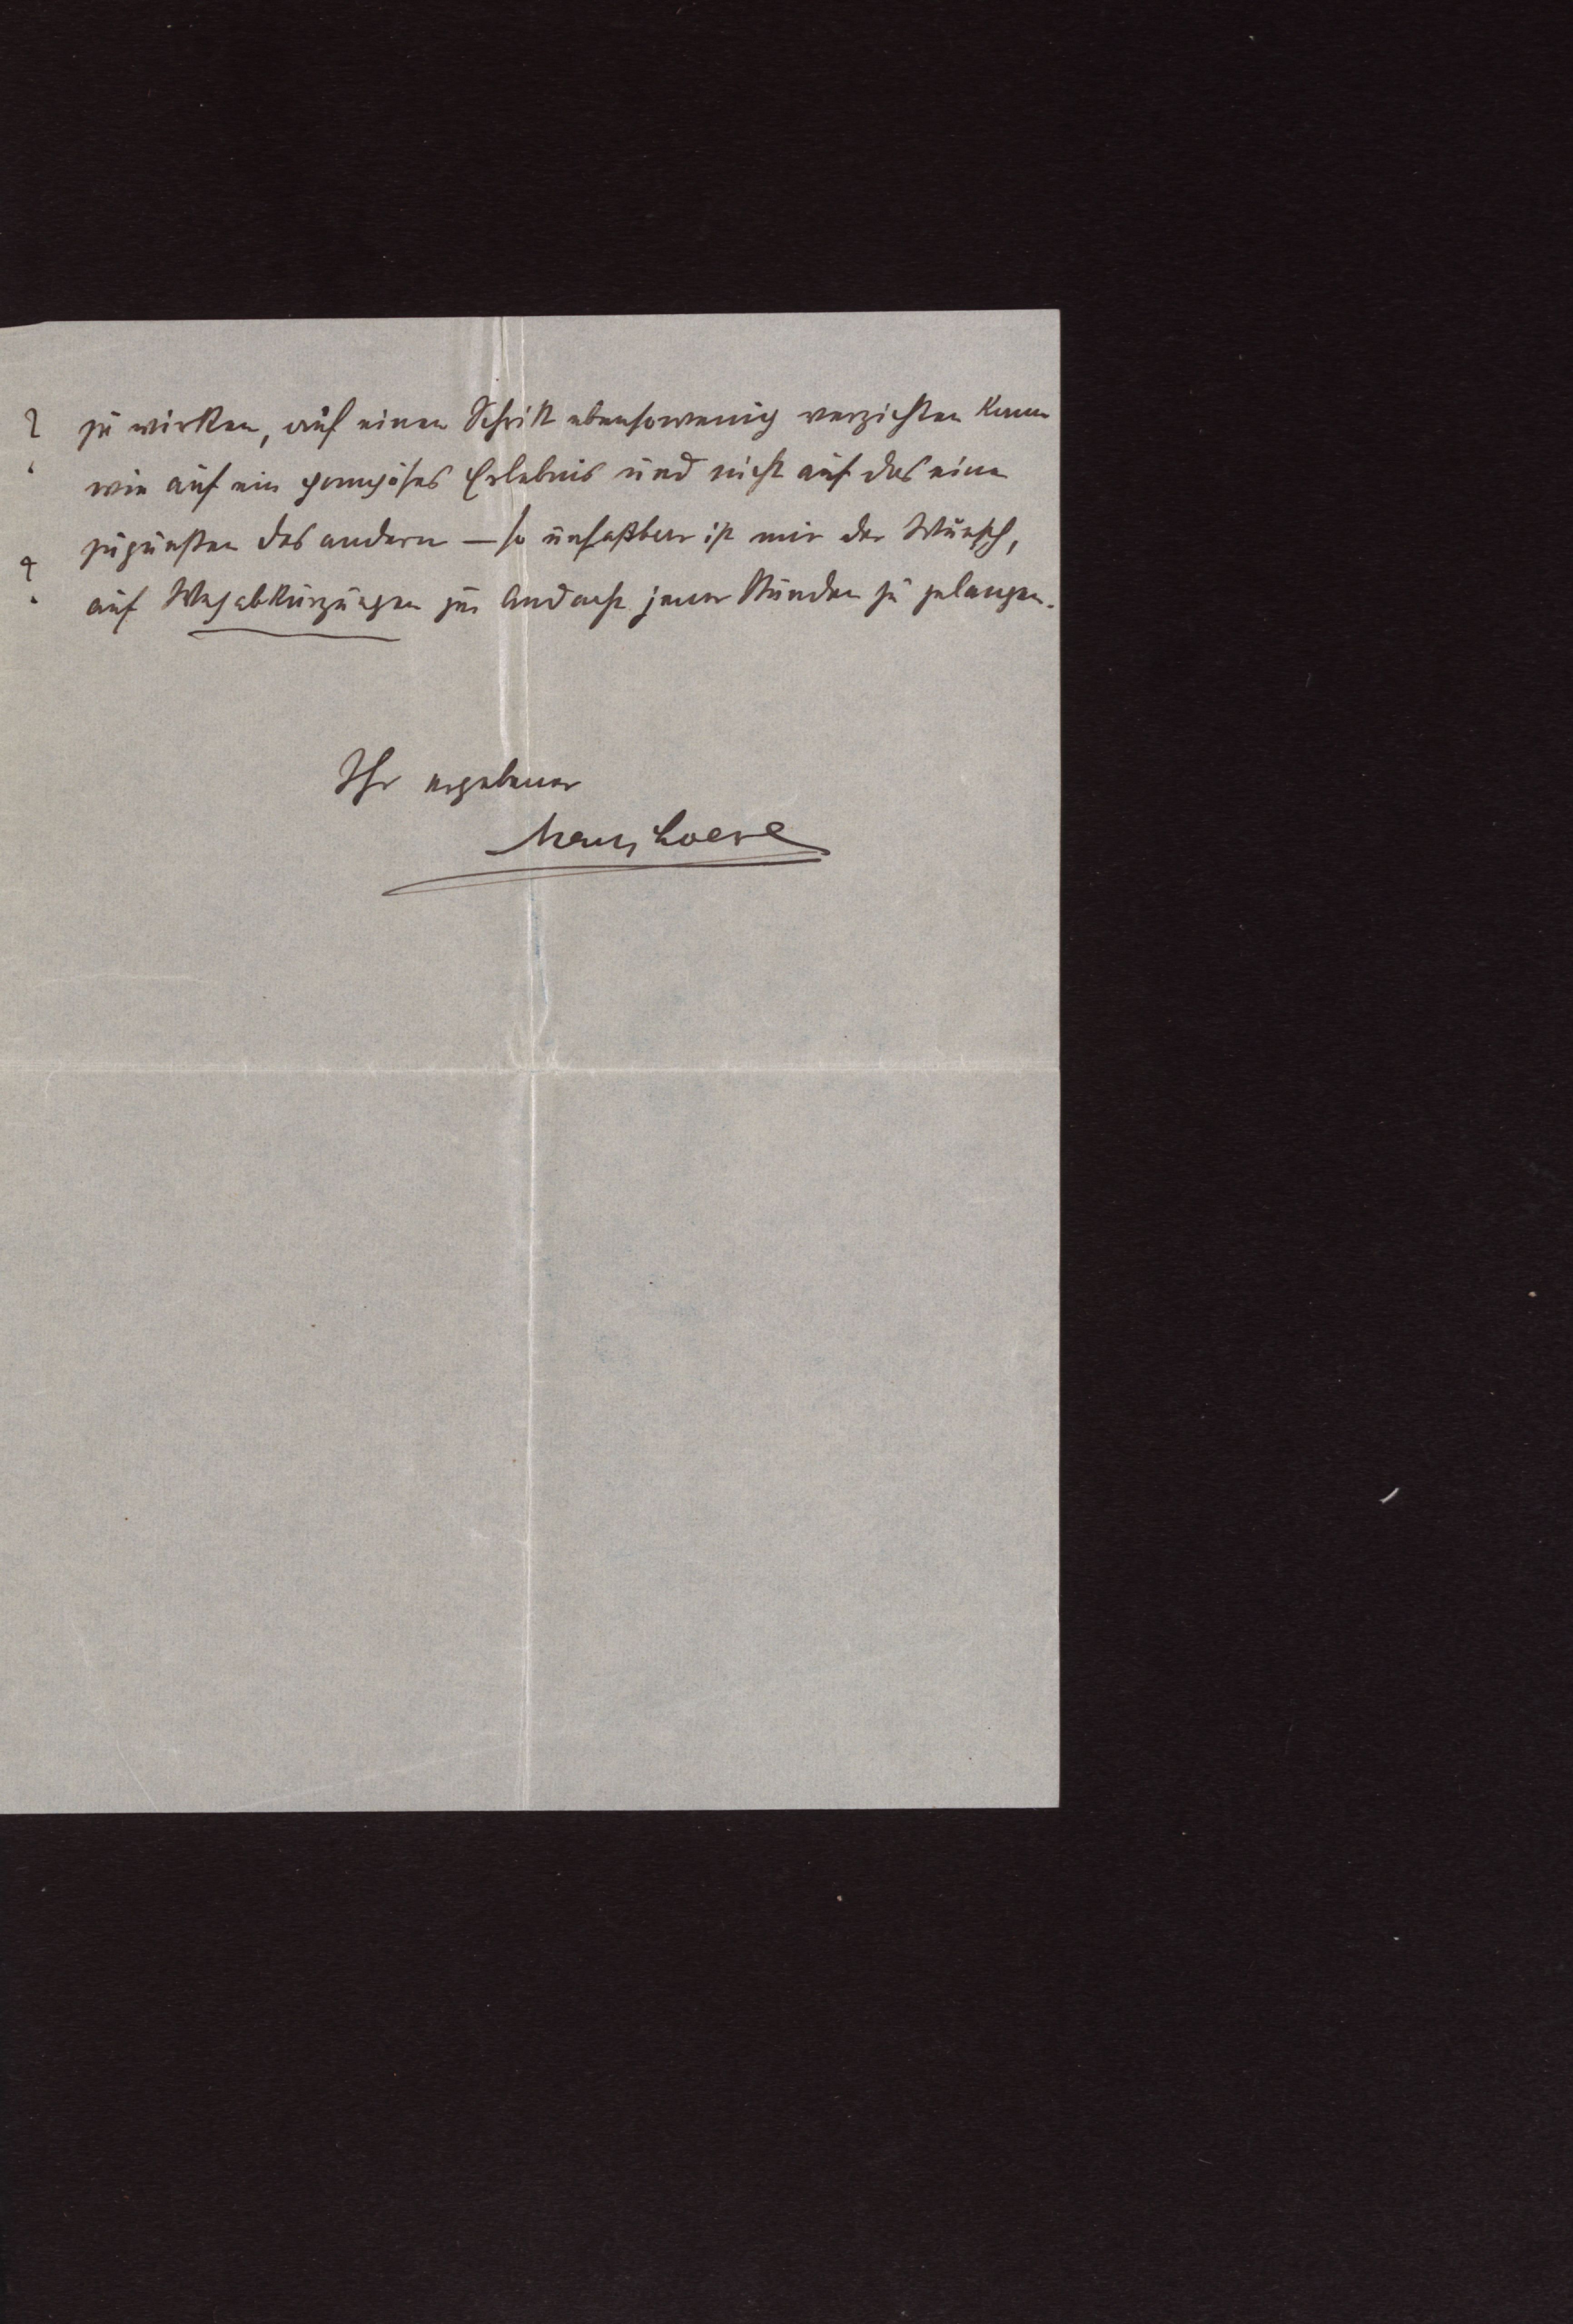 ? zu wirken, auf einen Schritt ebensowenig verzichten kann
wie auf ein grandioses Erlebnis und nicht auf das eine
? zugunsten des andern – so unfaßbar ist mir der Wunsch,
auf Wegabkürzungen zur Andacht jener Stunden zu gelangen.
Ihr ergebener
Loewe